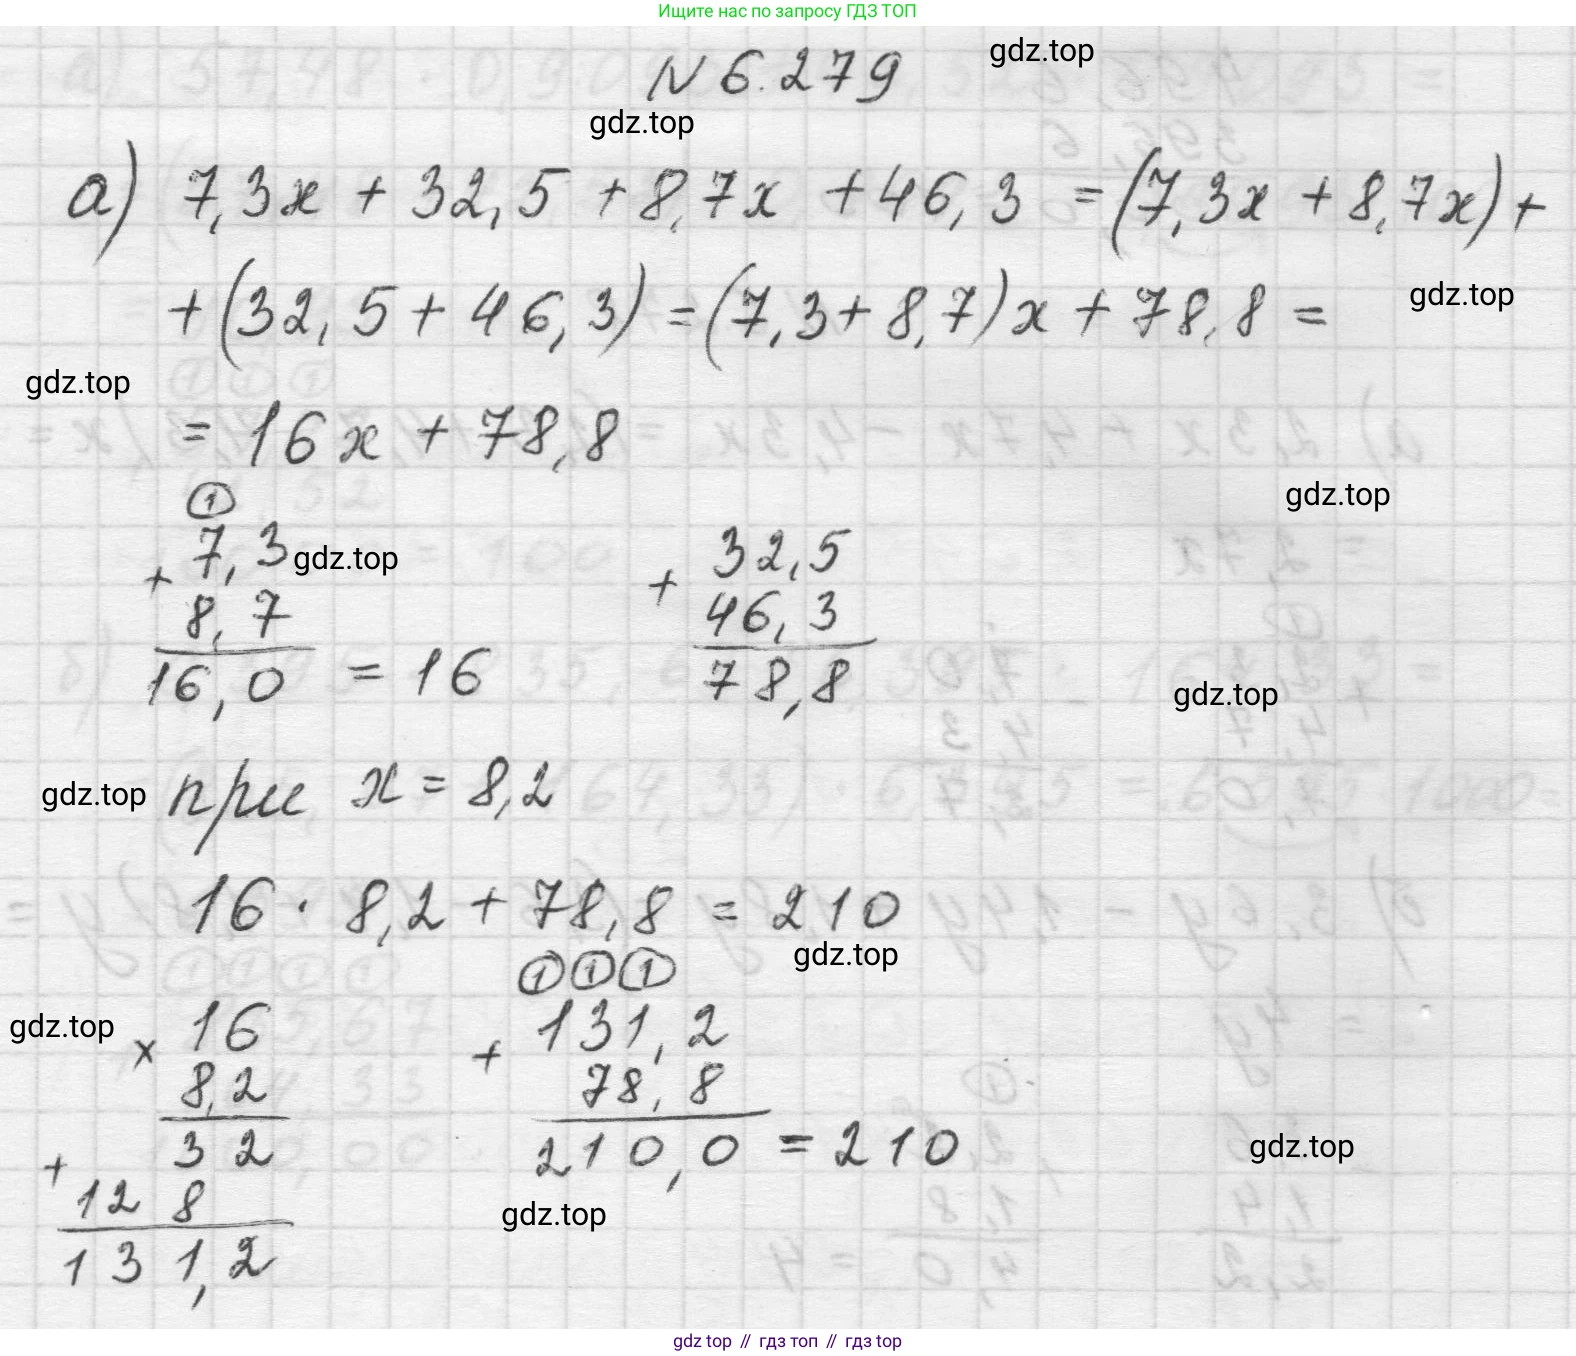 Ищите нас по запросу ГДЗ ТОП
№ 6.279
gdz.top
gdz.top
а) 7,3x + 32,5 + 8,7x + 46,3 = (7,3x + 8,7x) +
+ (32,5 + 46,3) = (7,3 + 8,7)x + 78,8 =
gdz.top
gdz.top
= 16x + 78,8
gdz.top
1
+ 7,3
gdz.top
8,7
16,0 = 16
+ 32,5
46,3
78,8
gdz.top
gdz.top
при x = 8,2
16 · 8,2 + 78,8 = 210
gdz.top
gdz.top
× 16
8,2
3 2
+ 12 8
13 1,2
1 1 1
+ 131,2
78,8
210,0 = 210
gdz.top
gdz.top
gdz top // гдз топ // гдз top